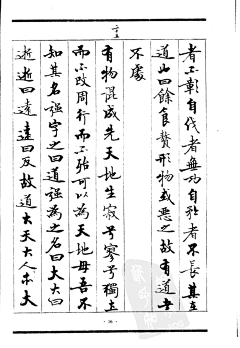 二十五
者不彰自伐者無功自矜者不長其在
道也曰餘食贅形物或惡之故有道者
不處
有物混成先天地生寂兮寥兮獨立
而不改周行而不殆可以為天地母吾不
知其名强字之曰道强為之名曰大大曰
逝逝曰遠遠曰反故道大天大人亦大